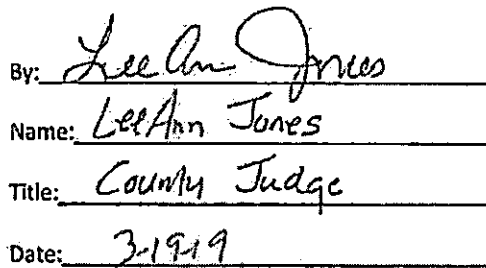 By: LeeAnn Jones
Name: LeeAnn Jones
Title: County Judge
Date: 3-19-19